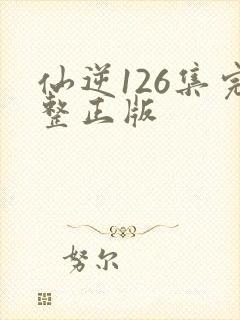 仙逆126集完
整正版
努尔